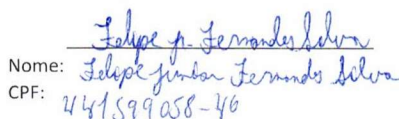 Felipe p. Fernandes Silva
Nome: Felipe Fernandes Silva
CPF: 441599058-46